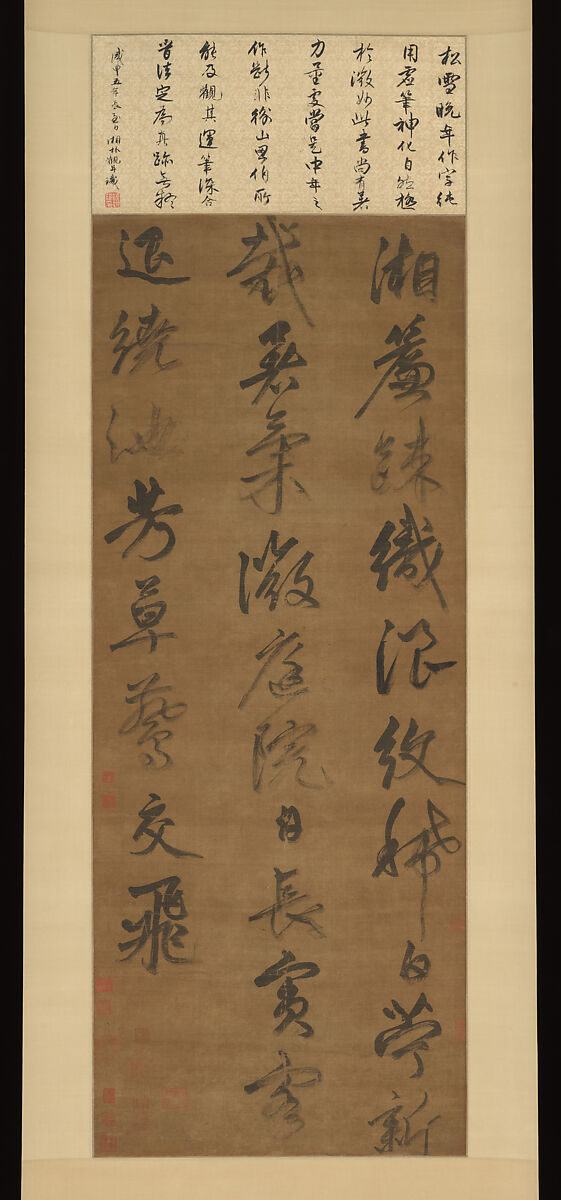 松雪晚年作字純
用虛筆神化自然極
於微妙此書尚有著
力重處當是中年之
作斷非徐山里伯所
能及觀其運筆深合
晉法定為真跡無疑
年長至日湘林觀并識
湘簾疎織浪紋稀白苧新
裁暑氣微庭院日長賓客
退繞池芳草鷰交飛